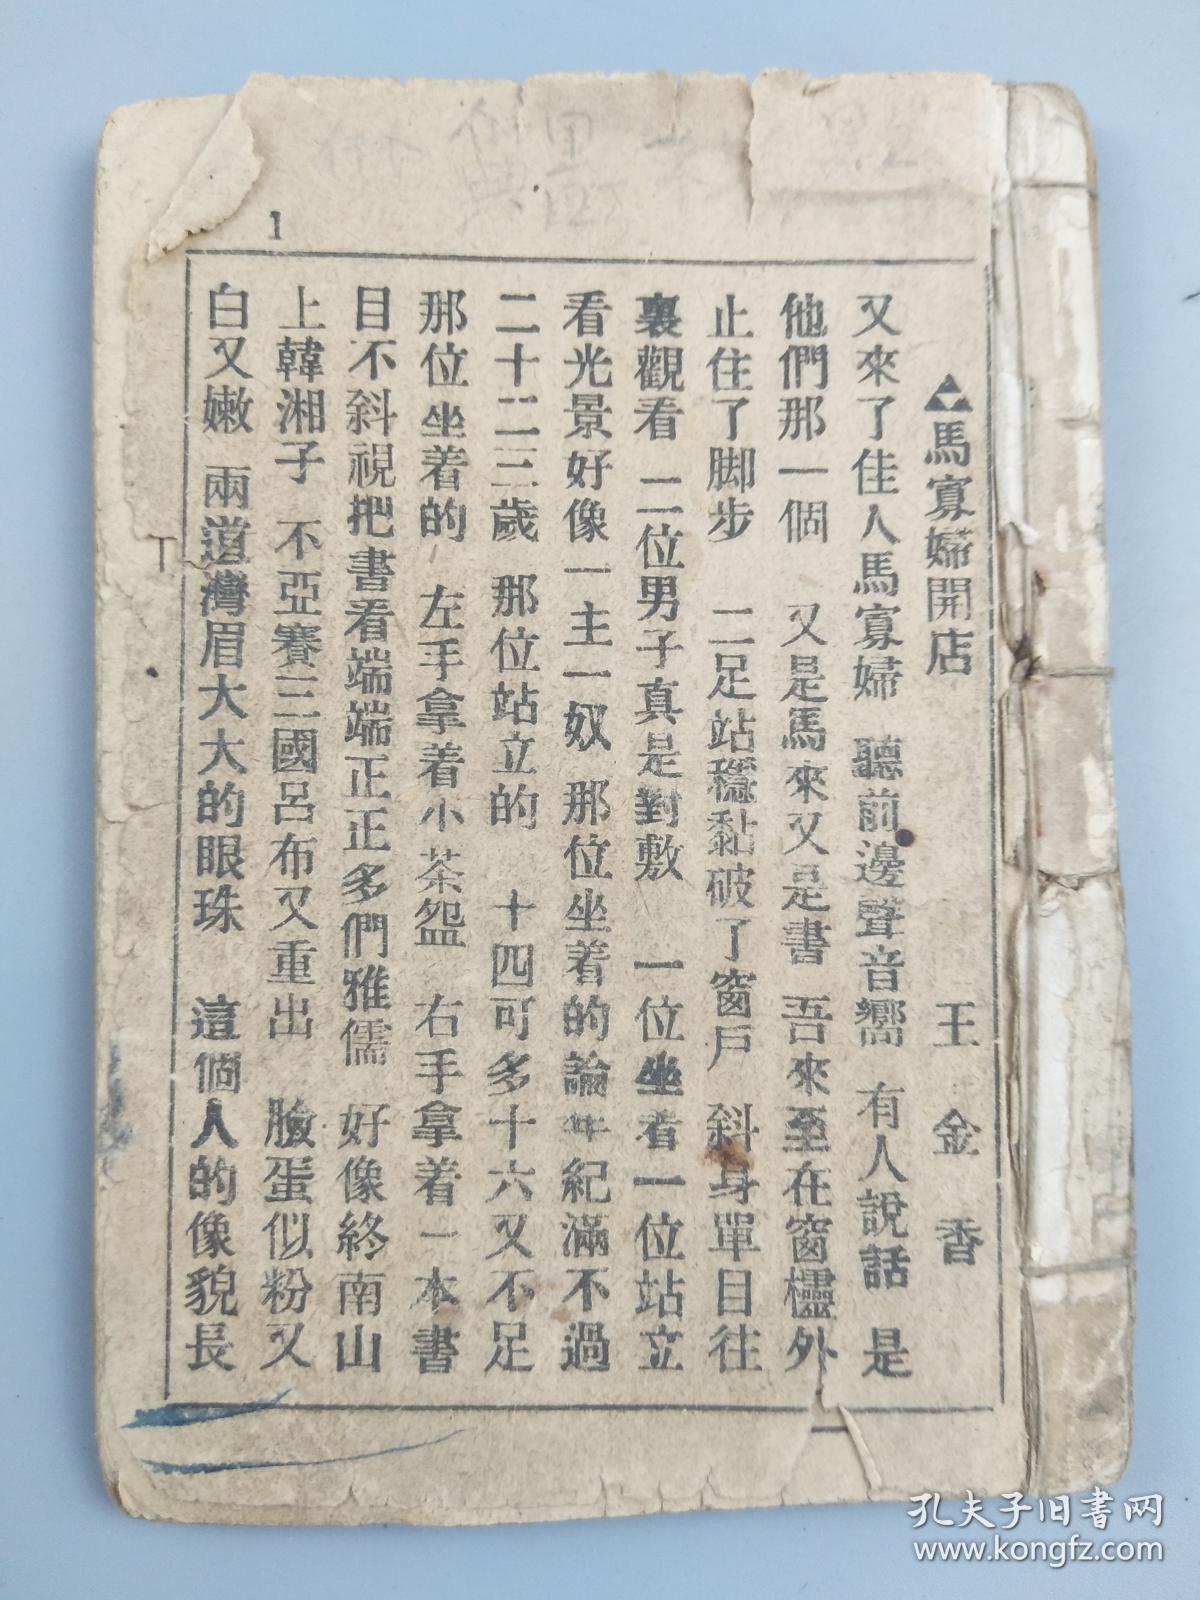 1
馬寡婦開店　王金香
又來了佳人馬寡婦　聽前邊聲音嚮　有人說話　是
他們那一個　又是馬來又是書　吾來至在窗櫺外
止住了脚步　二足站穩黏破了窗戶　斜身單目往
裏觀看　二位男子真是對敷　一位坐着一位站立
看光景好像一主一奴　那位坐着的論年紀滿不過
二十二三歲　那位站立的　十四可多十六又不足
那位坐着的　左手拿着小茶盌　右手拿着一本書
目不斜視把書看端端正正多們雅儒　好像終南山
上韓湘子　不亞賽三國呂布又重出　臉蛋似粉又
白又嫩　兩道灣眉大大的眼珠　這個人的像貌長
孔夫子旧书网
www.kongfz.com